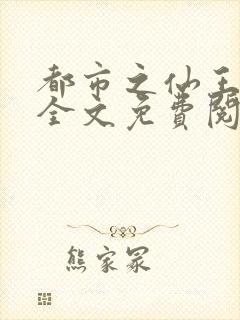 都市之仙王
全文免费阅
熊家冢